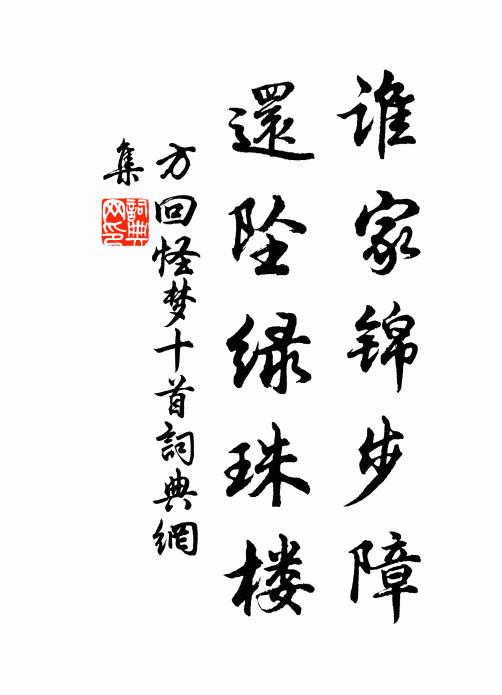 谁家锦步障
還坠绿珠楼
方回怪梦十首詞典網
集
詞典
网印